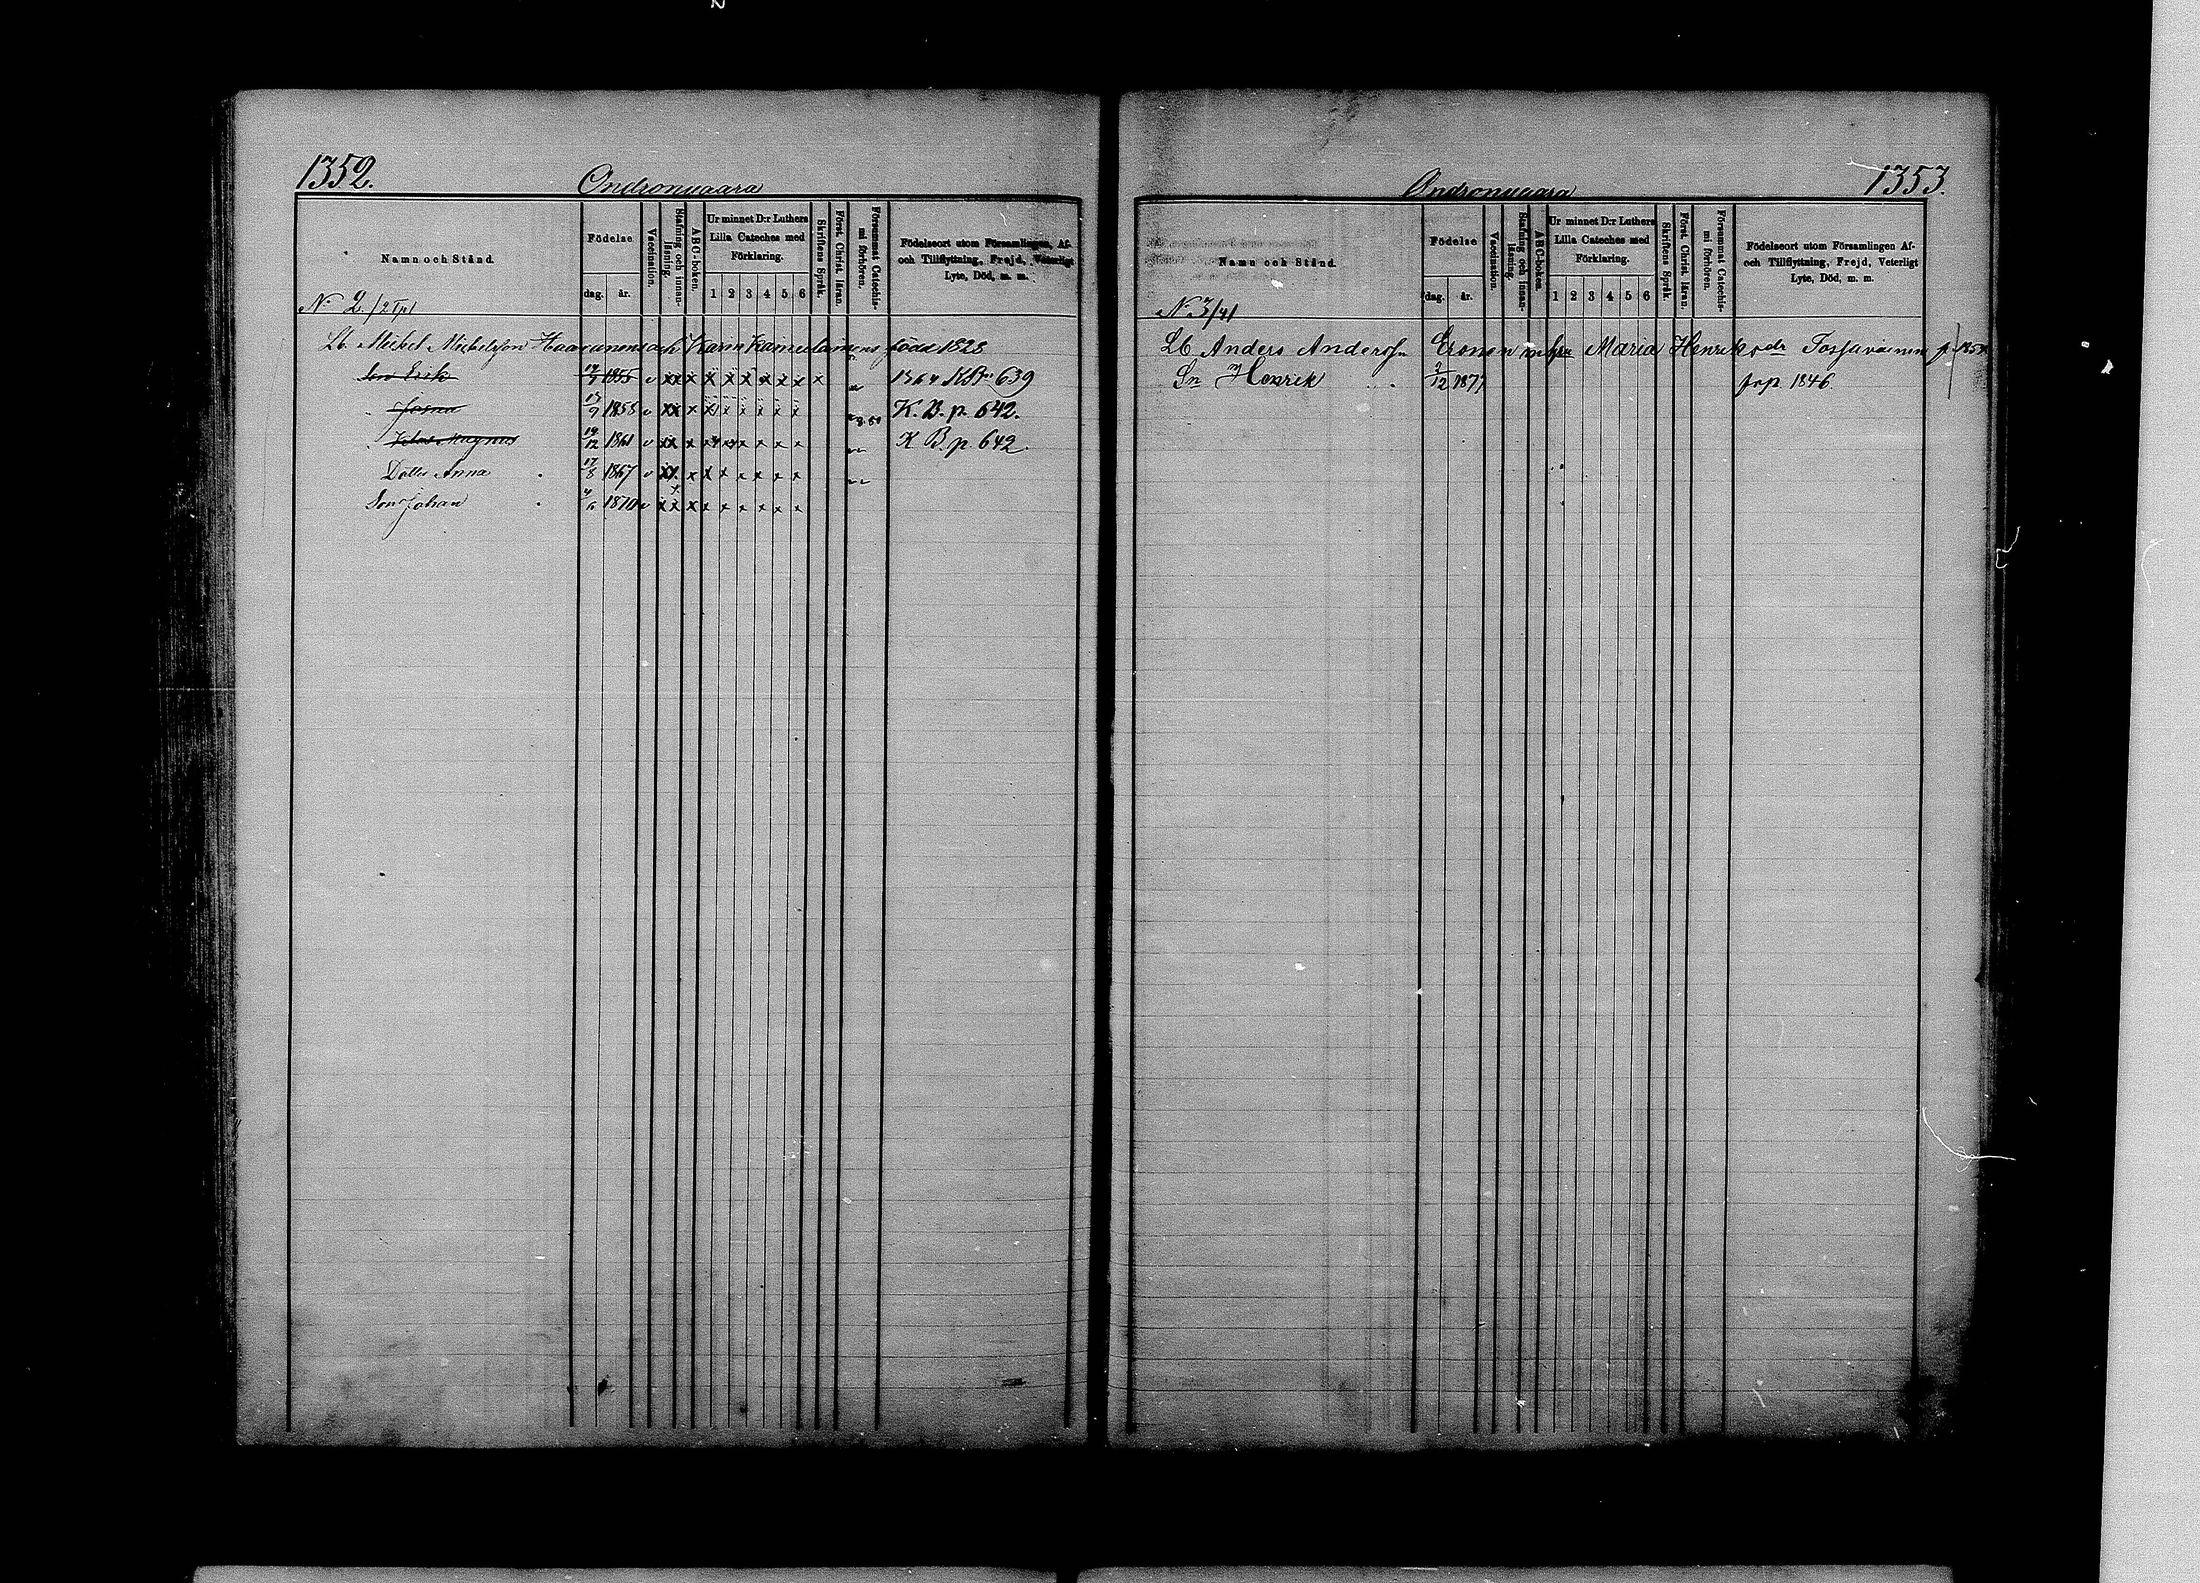 1352.
Ondronvaara
Namn och Stånd.
Födelse
dag. år.
Vaccination.
Stafning och innan-
läsning.
ABC-boken.
Ur minnet D:r Luthers
Lilla Cateches med
Förklaring.
1 2 3 4 5 6
Skriftens Språk.
Först. Christ. läran.
Försummat Catechis-
mi förhören.
Födelseort utom Församlingen, Af-
och Tillflyttning, Frejd, Veterligt
Lyte, Död, m. m.
N:o 2.
Lb. Mickel Mickelsson och Karin född 1828
Son Erik 1855 v xx x x x x x x x x 639
1858 v xx x x x x x x x K. B. p. 642.
Magnus 19/12 1861 v xx x x x x x x x K B. p. 642.
Dotter Anna 17/8 1867 v xx x x x x x x x
Son Johan 4/6 1870 v xx x x x x x x x
1353.
Ondronvaara
Namn och Stånd.
Födelse
dag. år.
Vaccination.
Stafning och innan-
läsning.
ABC-boken.
Ur minnet D:r Luthers
Lilla Cateches med
Förklaring.
1 2 3 4 5 6
Skriftens Språk.
Först. Christ. läran.
Försummat Catechis-
mi förhören.
Födelseort utom Församlingen Af-
och Tillflyttning, Frejd, Veterligt
Lyte, Död, m. m.
N:o 3/41
Lb Anders Anderss:n Eronen Maria Henriksdr Tossavainen
Sn Henrik 2/12 1877 1846